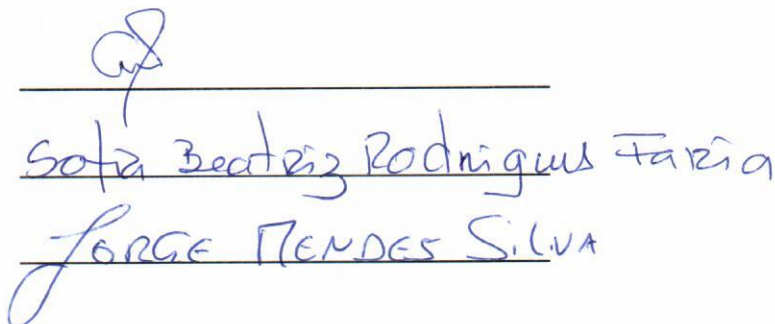 Sofia Beatriz Rodrigues Faria
JORGE MENDES SILVA